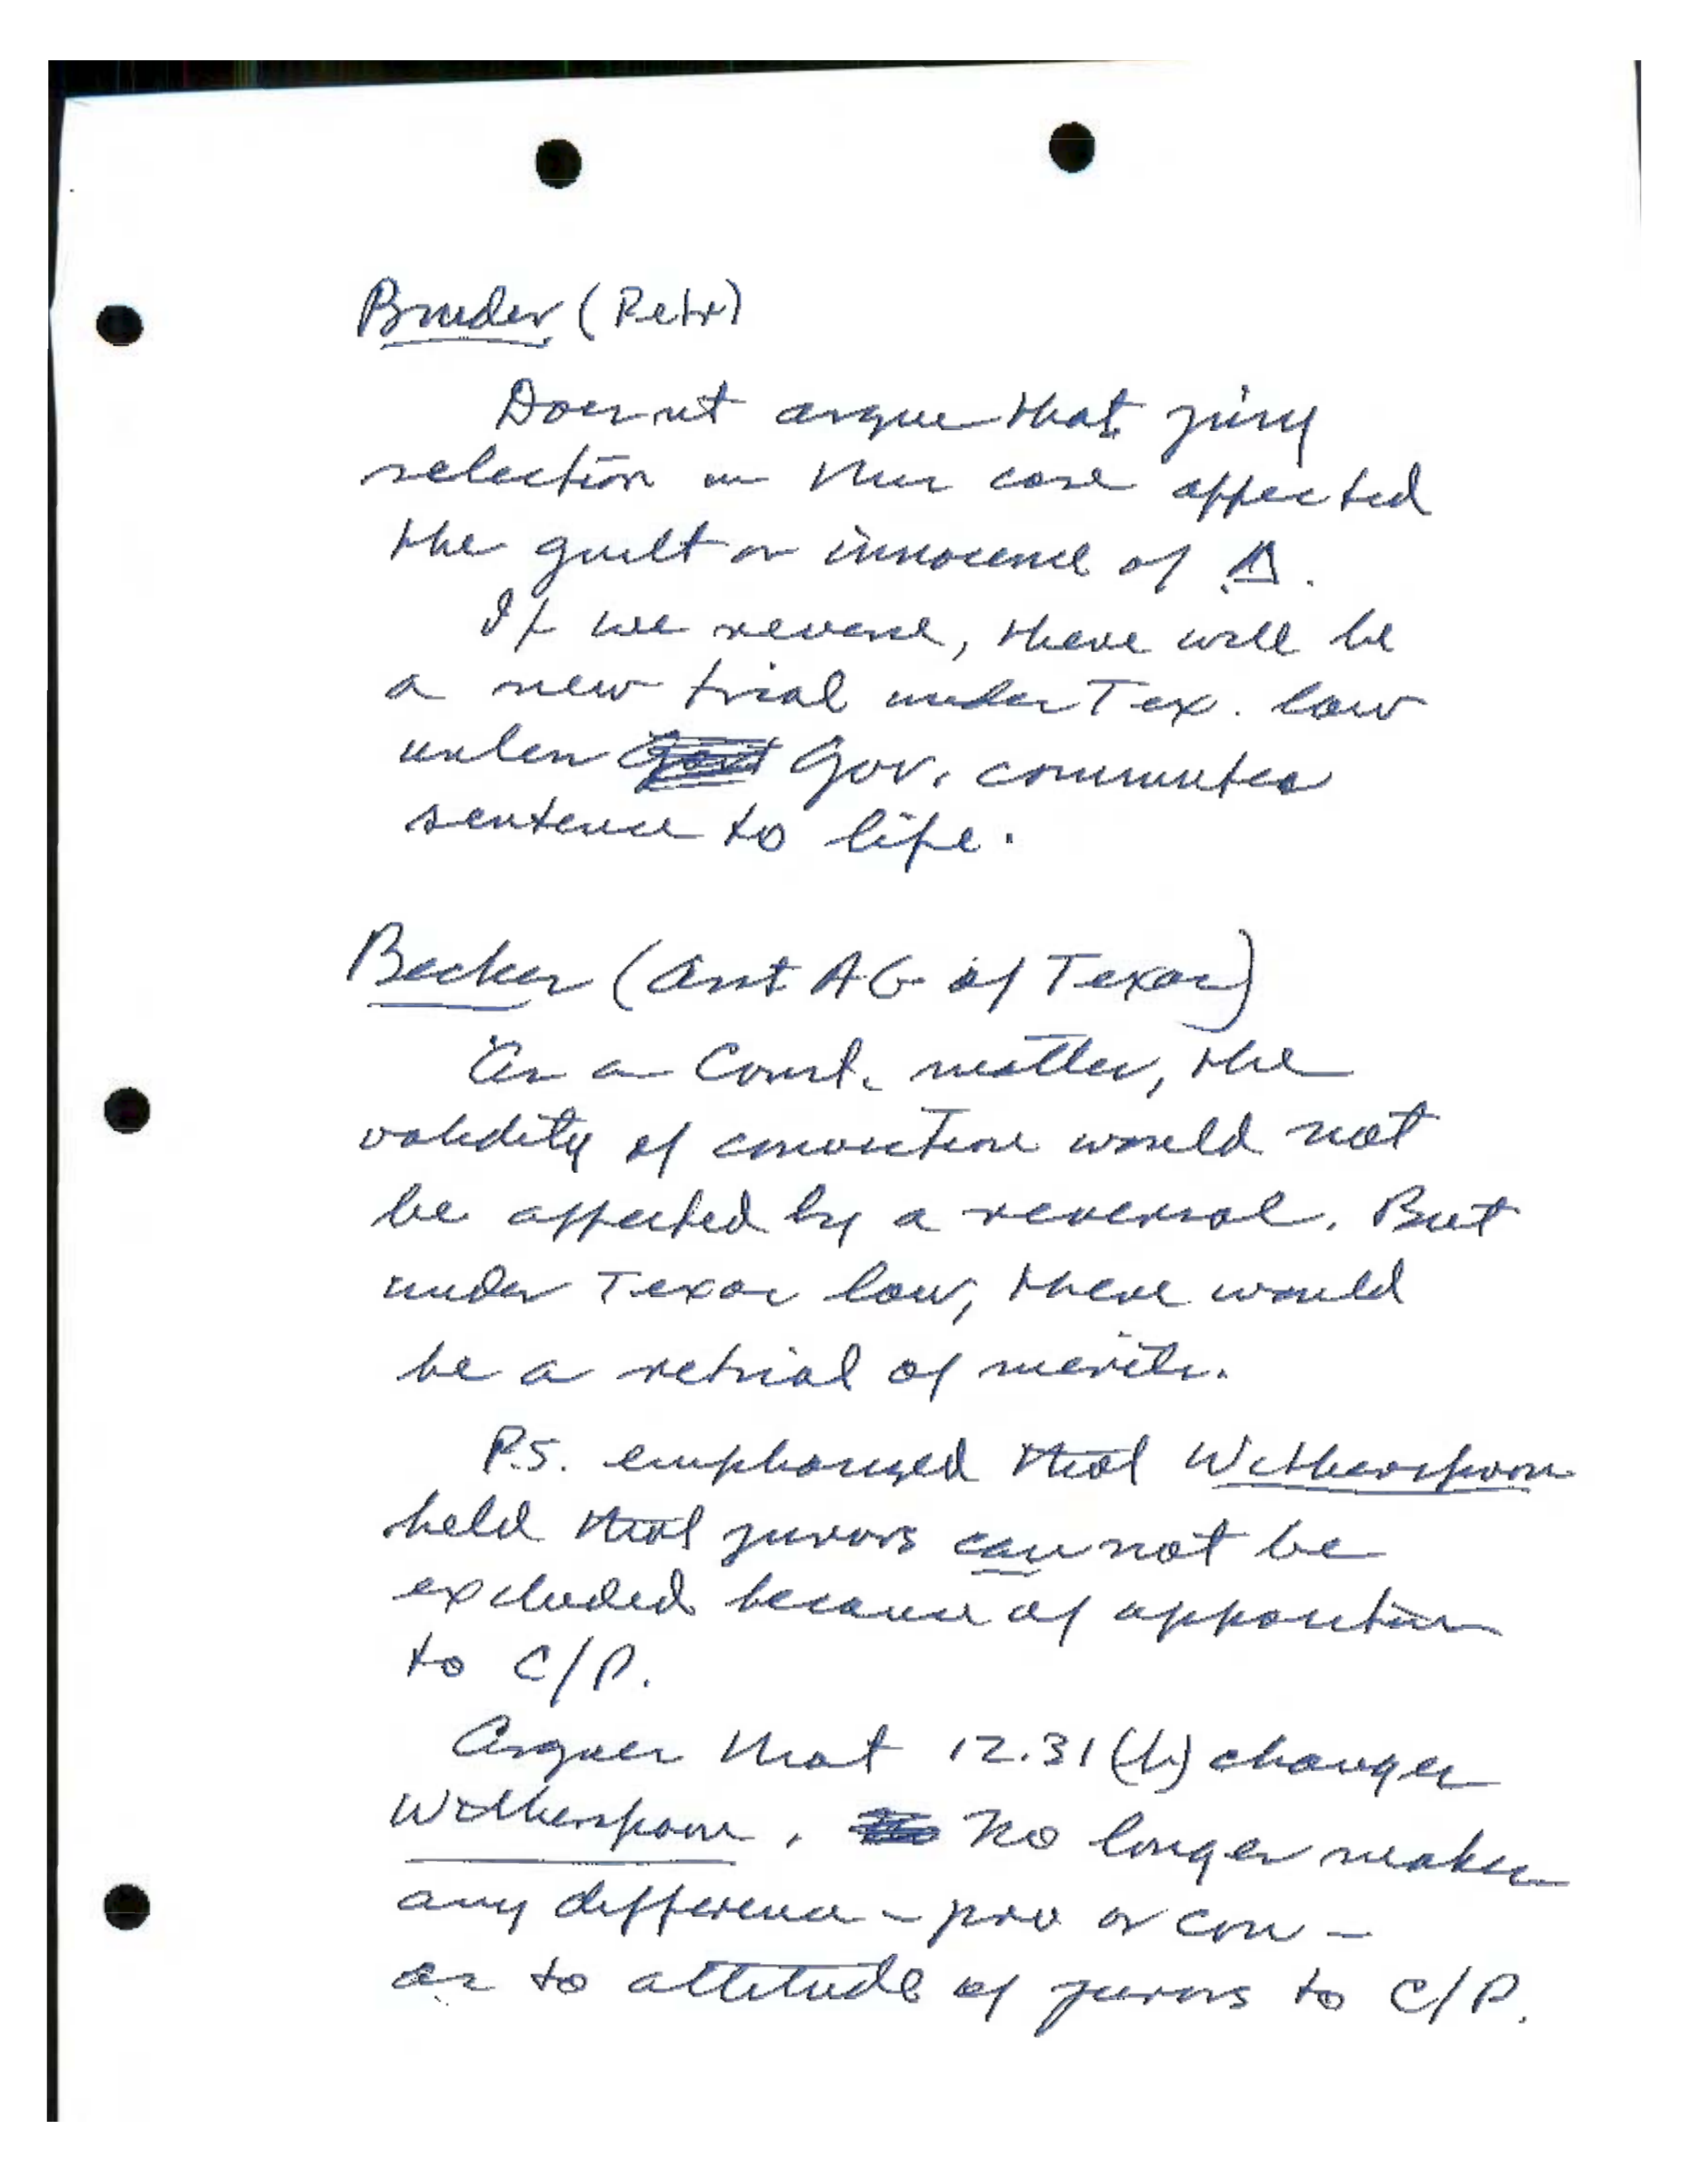 Bruder (Petr)
Doesn't argue that jury
selection in this case affected
the guilt or innocence of Δ.
If we reverse, there will be
a new trial under Tex. law
unless Gov. commutes
sentence to life.
Becker (Asst AG of Texas)
As a Const. matter, the
validity of conviction would not
be affected by a reversal. But
under Texas law, there would
be a retrial of merits.
P.S. emphasized that Witherspoon
held that jurors can not be
excluded because of opposition
to C/P.
Argues that 12.31(b) changes
Witherspoon. No longer makes
any difference - pro or con -
as to attitude of jurors to C/P.